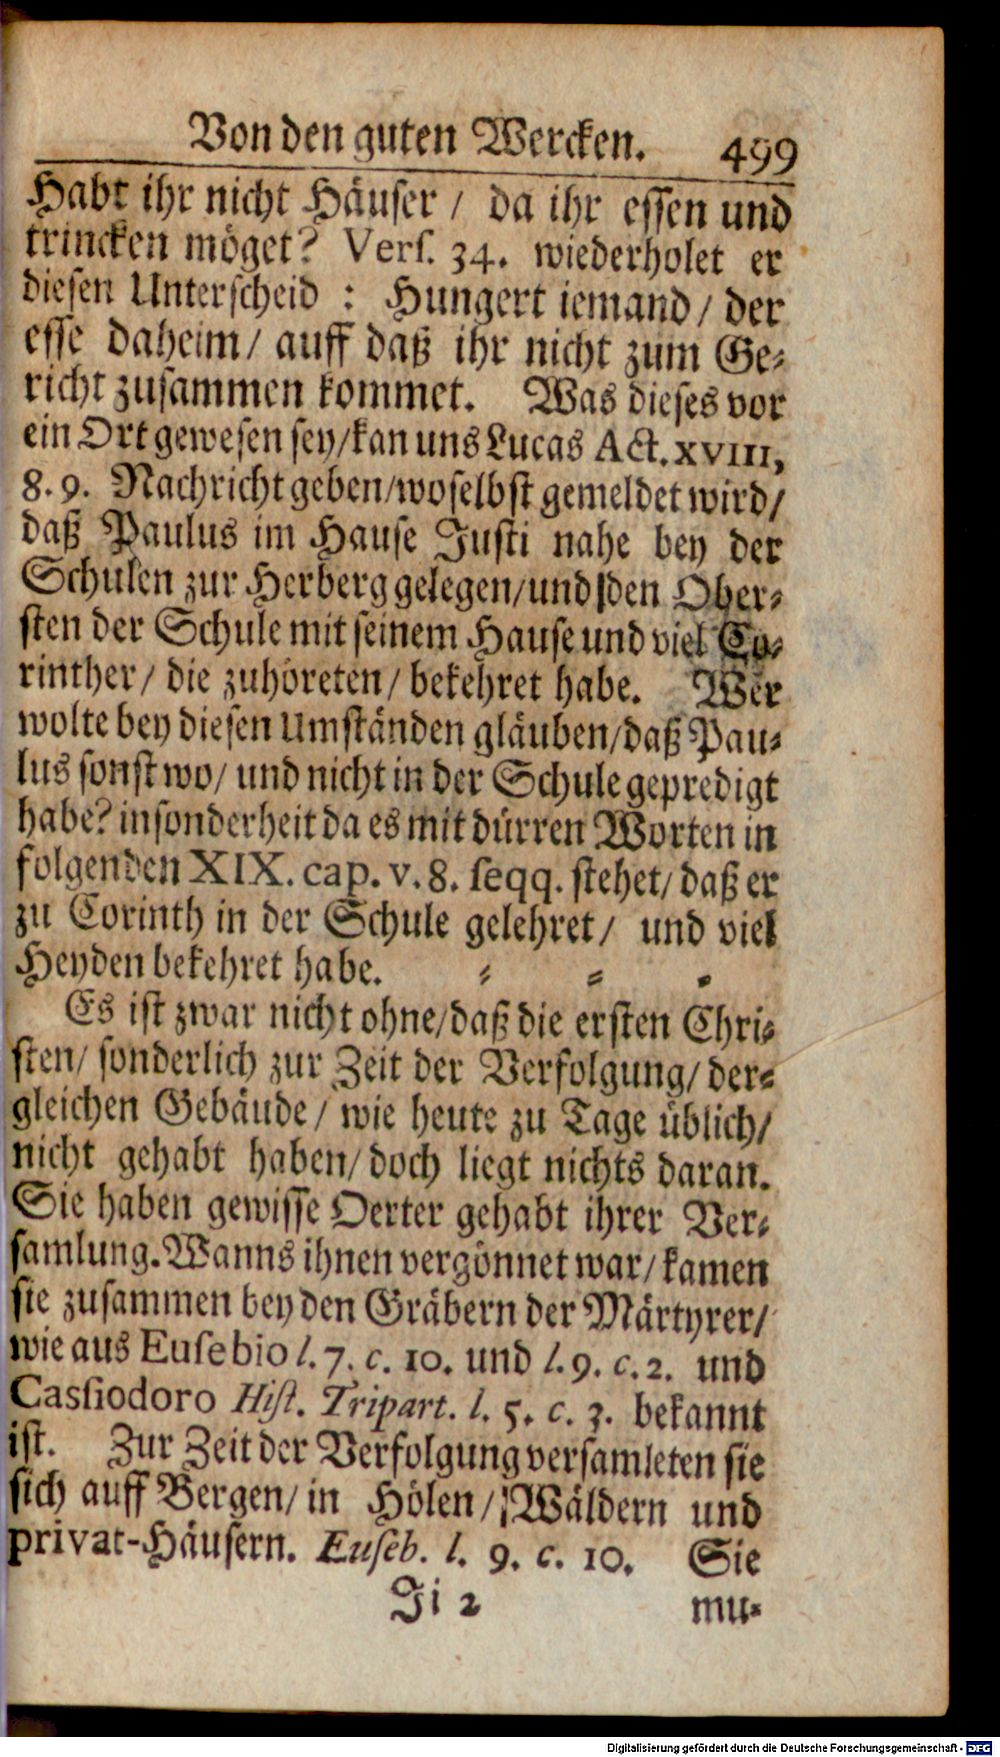 Von den guten Wercken. 499
Habt ihr nicht Häuser / da ihr essen und
trincken möget? Vers. 34. wiederholet er
diesen Unterscheid : Hungert iemand / der
esse daheim / auff daß ihr nicht zum Ge-
richt zusammen kommet. Was dieses vor
ein Ort gewesen sey/kan uns Lucas Act. XVIII,
8. 9. Nachricht geben/woselbst gemeldet wird/
daß Paulus im Hause Justi nahe bey der
Schulen zur Herberg gelegen/und den Ober-
sten der Schule mit seinem Hause und viel Co-
rinther / die zuhöreten / bekehret habe. Wer
wolte bey diesen Umständen gläuben/daß Pau-
lus sonst wo/ und nicht in der Schule gepredigt
habe? insonderheit da es mit dürren Worten in
folgenden XIX. cap. v. 8. seqq. stehet/ daß er
zu Corinth in der Schule gelehret / und viel
Heyden bekehret habe. - - -
Es ist zwar nicht ohne/daß die ersten Chri-
sten/ sonderlich zur Zeit der Verfolgung/ der-
gleichen Gebäude / wie heute zu Tage üblich/
nicht gehabt haben/ doch liegt nichts daran.
Sie haben gewisse Oerter gehabt ihrer Ver-
samlung. Wanns ihnen vergönnet war/ kamen
sie zusammen bey den Gräbern der Märtyrer/
wie aus Eusebio l. 7. c. 10. und l. 9. c. 2. und
Cassiodoro Hist. Tripart. l. 5. c. 3. bekannt
ist. Zur Zeit der Verfolgung versamleten sie
sich auff Bergen/ in Hölen / Wäldern und
privat-Häusern. Euseb. l. 9. c. 10. Sie
Ji 2 mu-
Digitalisierung gefördert durch die Deutsche Forschungsgemeinschaft - DFG